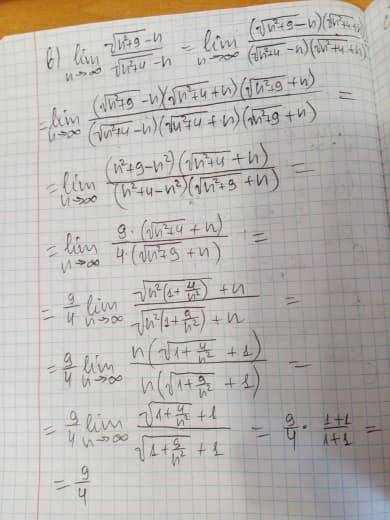 б) lim n→∞ (√(n²+9) − n)/(√(n²+4) − n) = lim n→∞ (√(n²+9) − n)(√(n²+4) + n)/(√(n²+4) − n)(√(n²+4) + n)
= lim n→∞ (√(n²+9) − n)(√(n²+4) + n)(√(n²+9) + n)/(√(n²+4) − n)(√(n²+4) + n)(√(n²+9) + n) =
= lim n→∞ (n²+9−n²)(√(n²+4) + n)/(n²+4−n²)(√(n²+9) + n) =
= lim n→∞ 9·(√(n²+4) + n)/4·(√(n²+9) + n) =
= 9/4 lim n→∞ (√(n²(1+4/n²)) + n)/(√(n²(1+9/n²)) + n) =
= 9/4 lim n→∞ n(√(1+4/n²) + 1)/n(√(1+9/n²) + 1) =
= 9/4 lim n→∞ (√(1+4/n²) + 1)/(√(1+9/n²) + 1) = 9/4 · (1+1)/(1+1) =
= 9/4